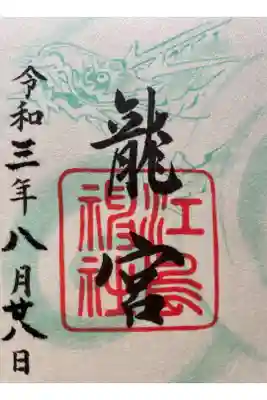 龍宮
江島
神社
令和三年八月廿八日